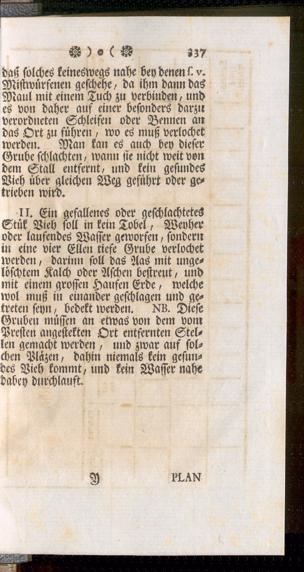 ❁ ) o ( ❁ 337
daß solches keineswegs nahe bey denen s. v.
Mistwürfenen geschehe, da ihm dann das
Maul mit einem Tuch zu verbinden, und
es von daher auf einer besonders darzu
verordneten Schleifen oder Bennen an
das Ort zu führen, wo es muß verlochet
werden. Man kan es auch bey dieser
Grube schlachten, wann sie nicht weit von
dem Stall entfernt, und kein gesundes
Vieh über gleichen Weg geführt oder ge-
trieben wird.
II. Ein gefallenes oder geschlachtetes
Stük Vieh soll in kein Tobel, Weyher
oder laufendes Wasser geworfen, sondern
in eine vier Ellen tiefe Grube verlochet
werden, darinn soll das Aas mit unge-
löschtem Kalch oder Aschen bestreut, und
mit einem grossen Haufen Erde, welche
wol muß in einander geschlagen und ge-
treten seyn, bedekt werden. NB. Diese
Gruben müssen an etwas von dem vom
Presten angestekten Ort entfernten Stel-
len gemacht werden, und zwar auf sol-
chen Pläzen, dahin niemals kein gesun-
des Vieh kommt, und kein Wasser nahe
dabey durchlauft.
Y PLAN